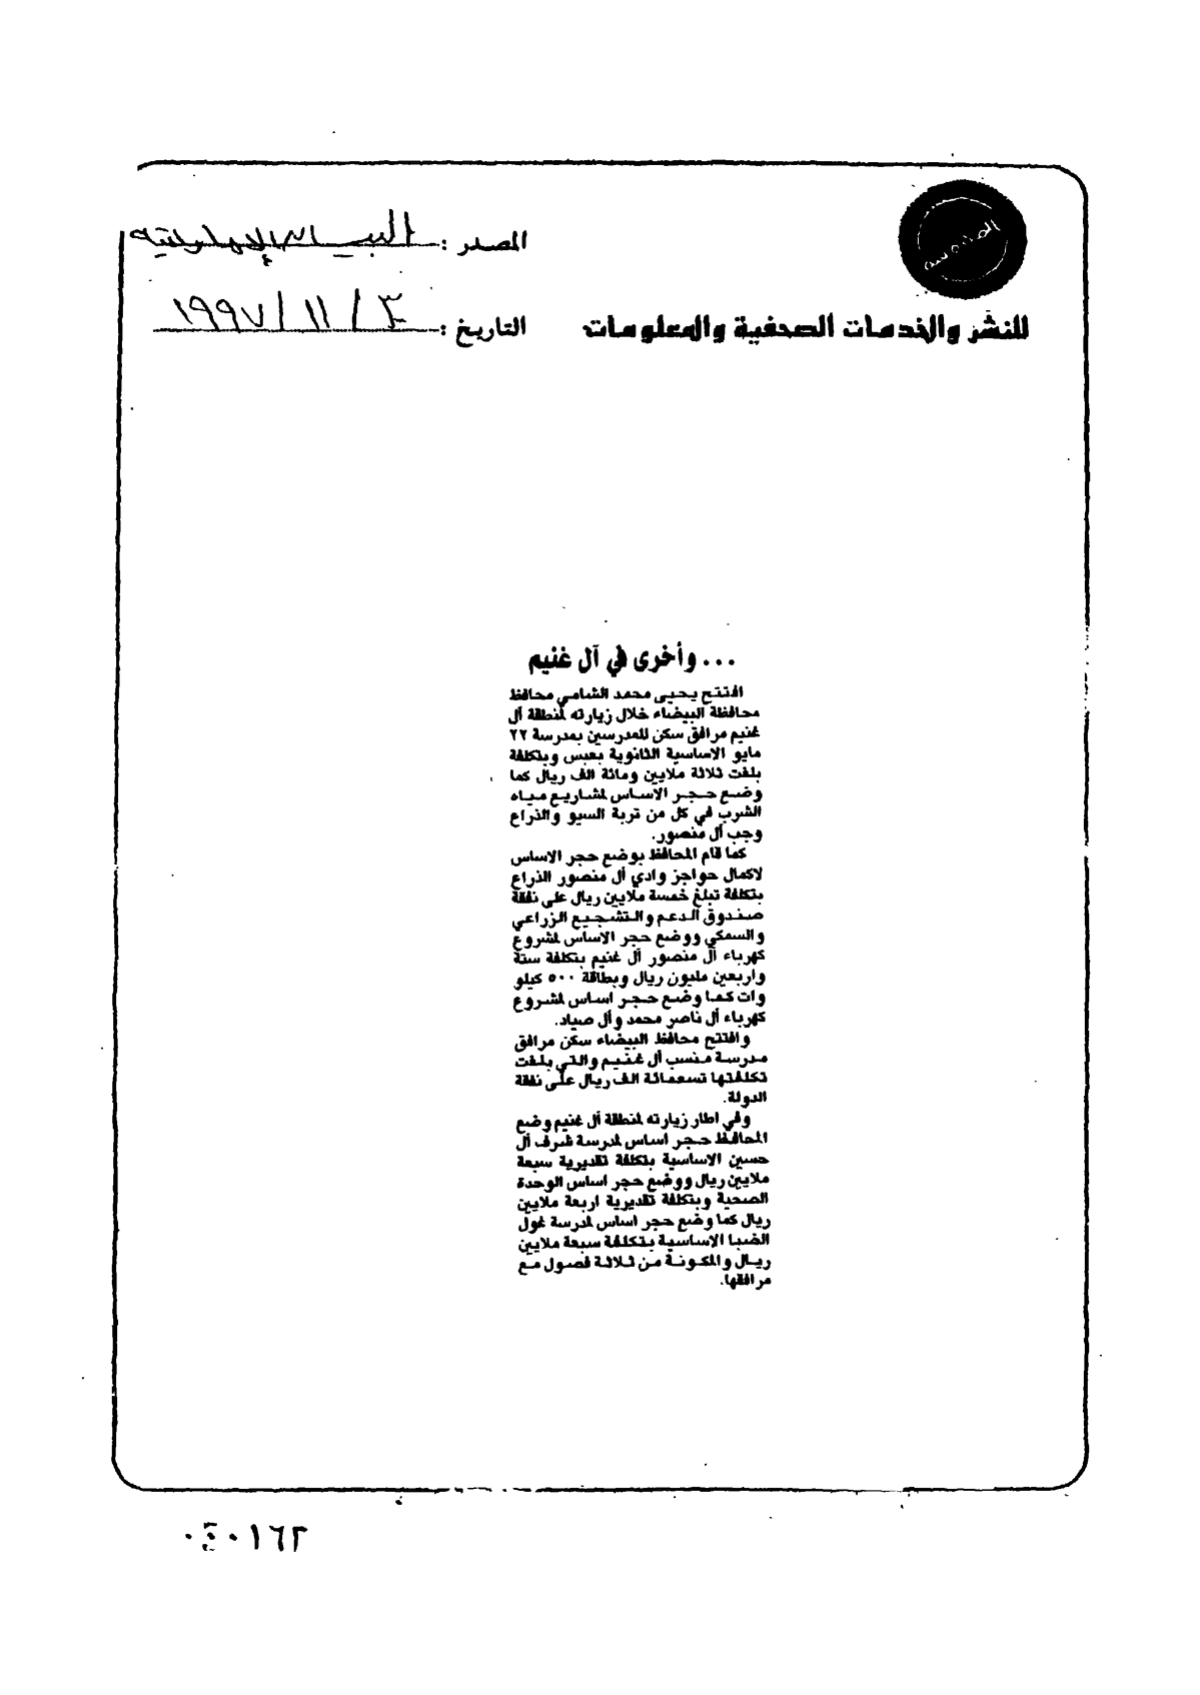 المصدر : البيان الإماراتية
للنشر والخدمات الصحفية والمعلومات
التاريخ : ٣٠ / ١١ / ١٩٩٧
... وأخرى في آل غنيم
افتتح يحيى محمد الشامي محافظ
محافظة البيضاء خلال زيارته لمنطقة آل
غنيم مرافق سكن للمدرسين بمدرسة ٢٢
مايو الاساسية الثانوية بعبس وبتكلفة
بلغت ثلاثة ملايين ومائة الف ريال كما
وضع حجر الاساس لمشاريع مياه
الشرب في كل من تربة السيو والذراع
وجب آل منصور.
كما قام المحافظ بوضع حجر الاساس
لاكمال حواجز وادي آل منصور الذراع
بتكلفة تبلغ خمسة ملايين ريال على نفقة
صندوق الدعم والتشجيع الزراعي
والسمكي ووضع حجر الاساس لمشروع
كهرباء آل منصور آل غنيم بتكلفة ستة
واربعين مليون ريال وبطاقة ٥٠٠ كيلو
وات كما وضع حجر اساس لمشروع
كهرباء آل ناصر محمد وآل صياد.
وافتتح محافظ البيضاء سكن مرافق
مدرسة منسب آل غنيم والتي بلغت
تكلفتها تسعمائة الف ريال على نفقة
الدولة.
وفي اطار زيارته لمنطقة آل غنيم وضع
المحافظ حجر اساس لمدرسة شرف آل
حسين الاساسية بتكلفة تقديرية سبعة
ملايين ريال ووضع حجر اساس الوحدة
الصحية وبتكلفة تقديرية اربعة ملايين
ريال كما وضع حجر اساس لمدرسة غول
الضبا الاساسية بتكلفة سبعة ملايين
ريال والمكونة من ثلاثة فصول مع
مرافقها.